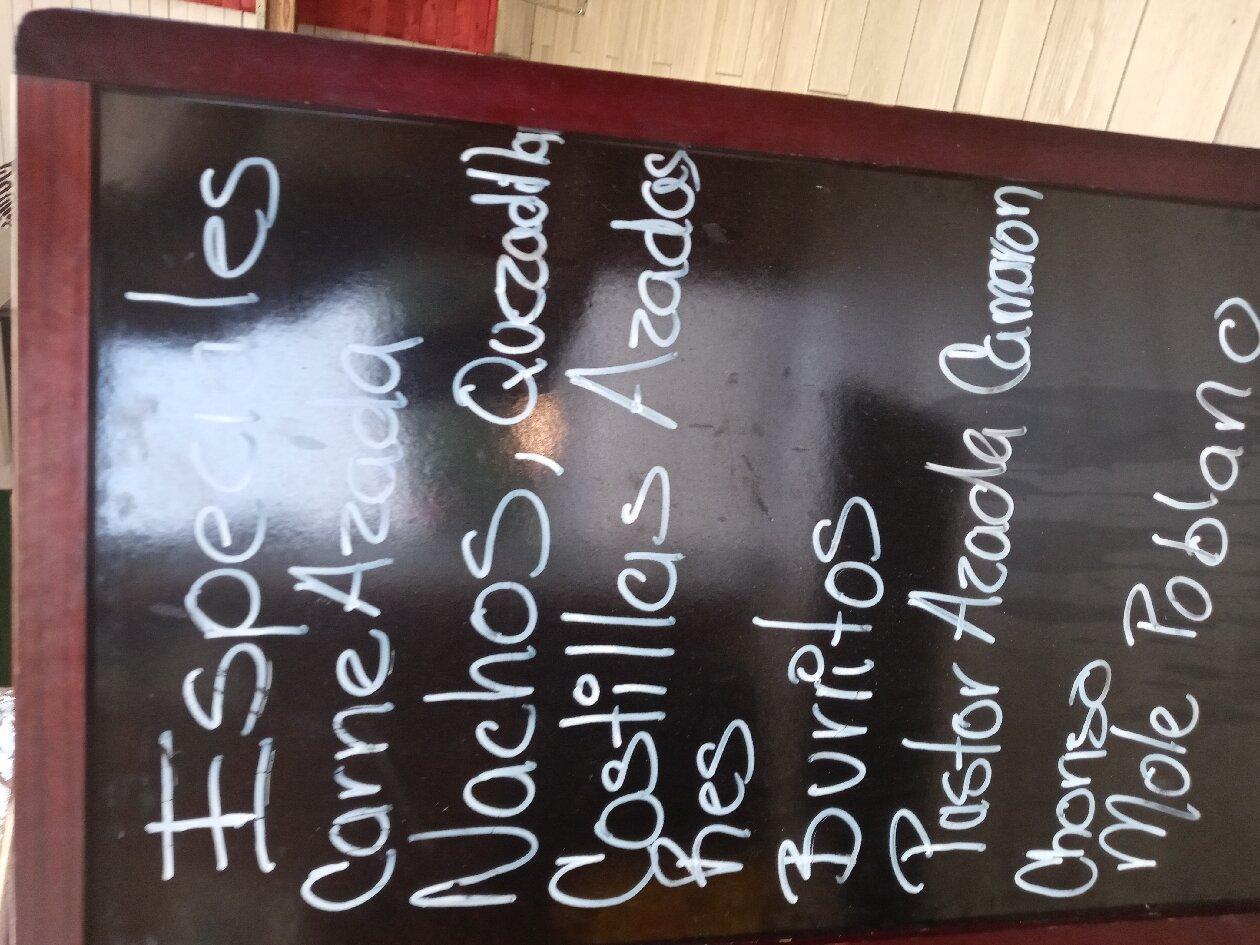 Especiales
Carne Azada
Nachos, Quezadilla
Costillas Azados
Res
Burritos
Pastor Azada Camaron
Choriso
Mole Poblano